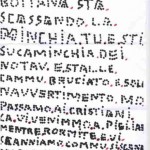 BOTTANA. STA
SCASSANDO. LA
MINCHIA. TU. E. STI
SUCAMINCHIA. DEI
NOTAV. E. STALLE
CAMMU. BRUCIATO. E. SOLI
NAVVERTIMENTO. MO
PASSAMO. AI. CRISTIANI
CA. VI. VENIMMO. A. PIGLIA
MENTRE. RORMITE. E. VI
SCANNIAMO. COMNU. I. SCEGNI